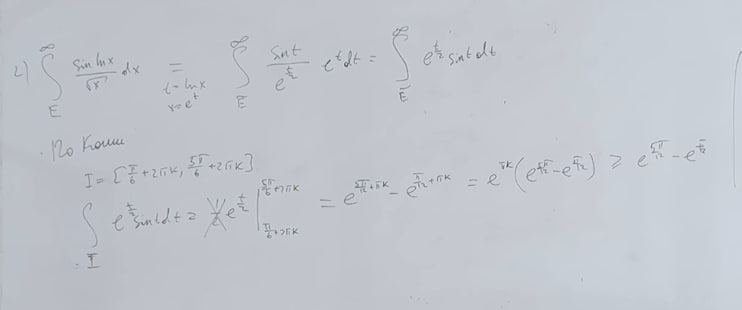 2) ∫_E^∞ sin lnx / √x dx = (t = lnx, x = e^t) ∫_E^∞ sint / e^{t/2} e^t dt = ∫_E^∞ e^{t/2} sint dt
По Коши
I = [π/6 + 2πk, 5π/6 + 2πk]
∫_I e^{t/2} sint dt ≥ e^{t/2} |_{π/6+2πk}^{5π/6+2πk} = e^{5π/12+πk} - e^{π/12+πk} = e^{πk}(e^{5π/12} - e^{π/12}) ≥ e^{5π/12} - e^{π/12}